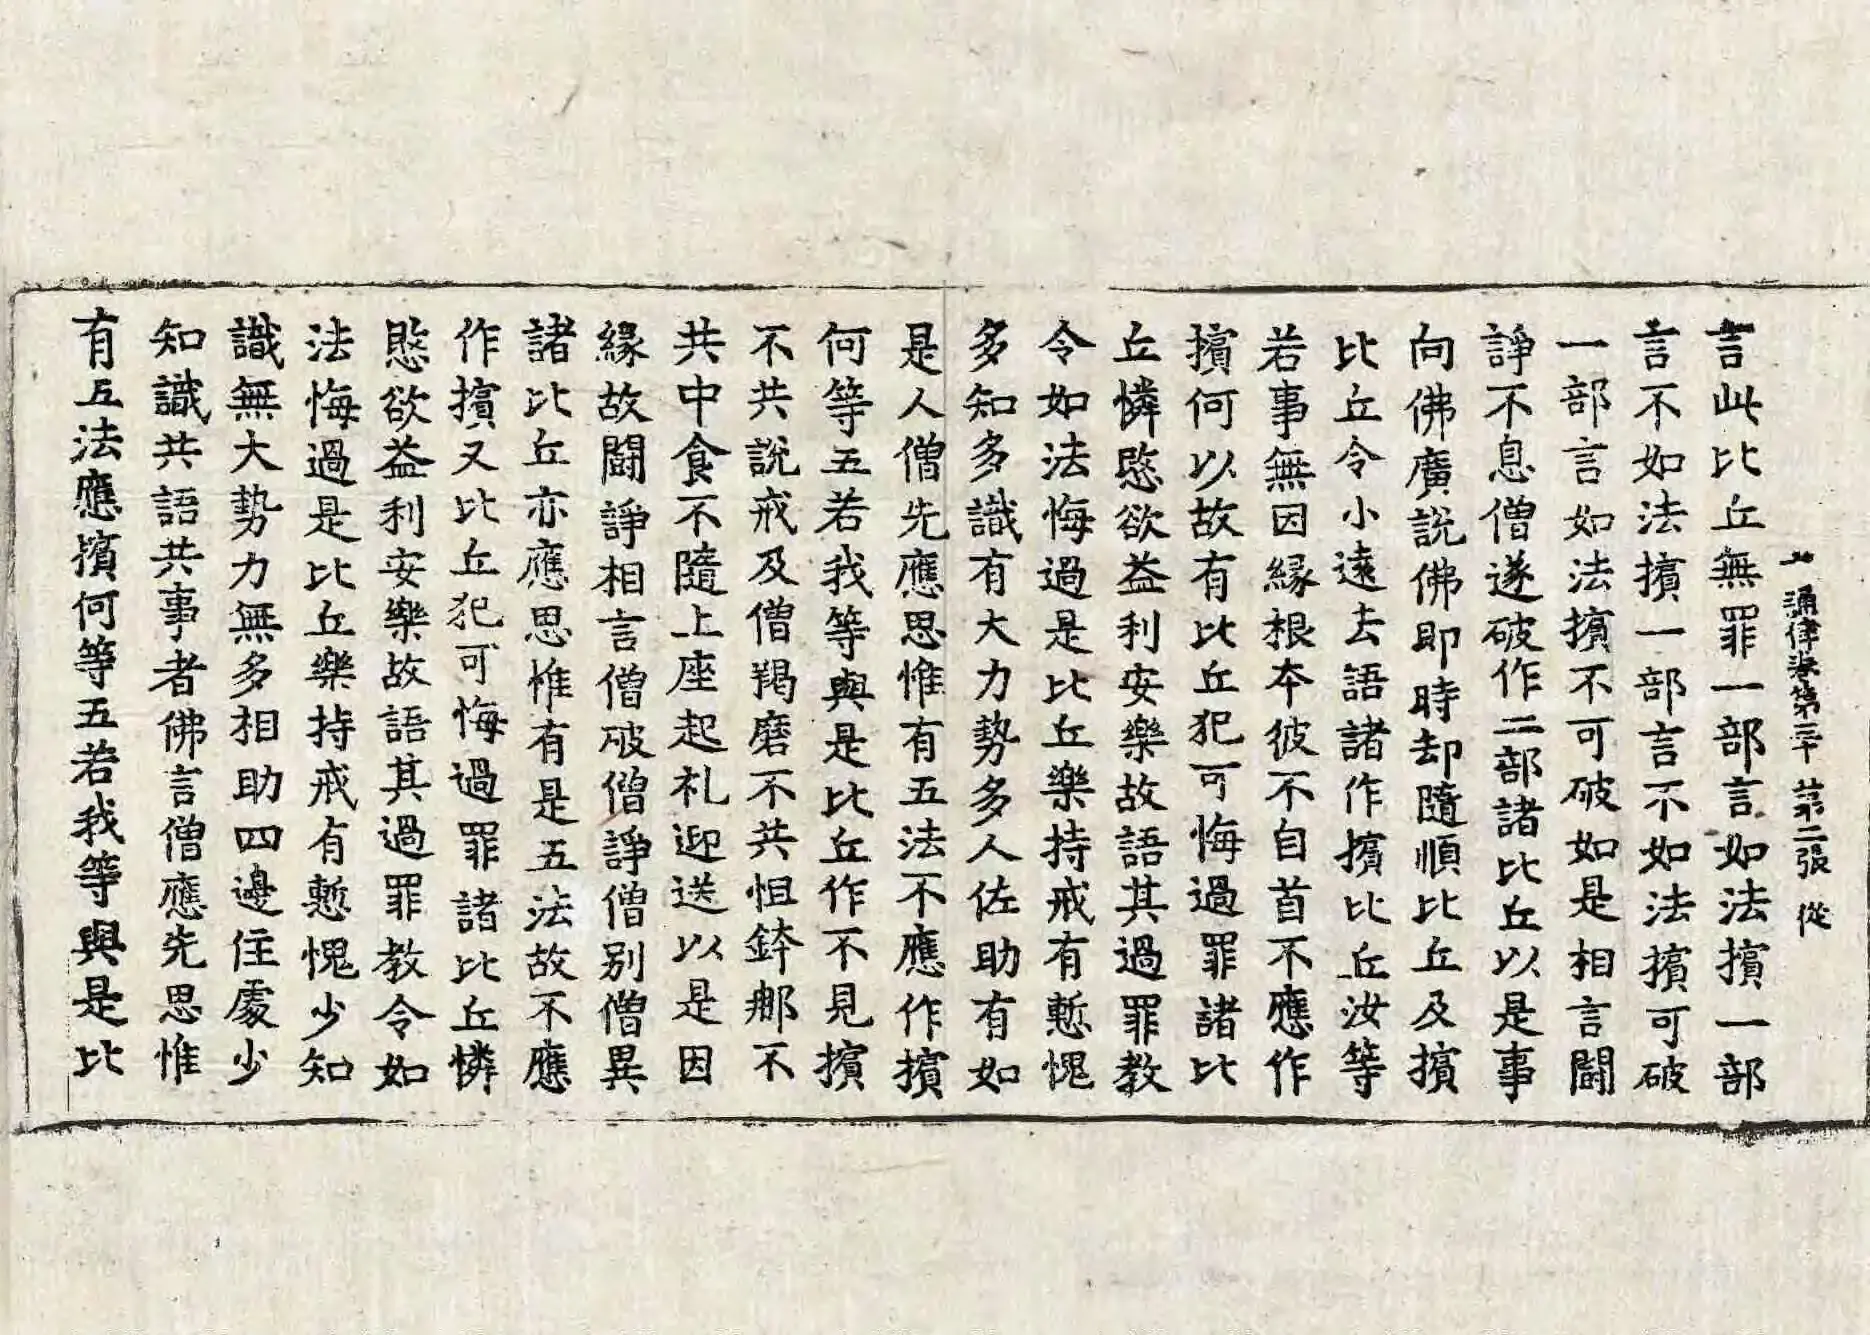 十誦律卷第三十 苐二張 從
言此比丘無罪一部言如法擯一部
言不如法擯一部言不如法擯可破
一部言如法擯不可破如是相言闘
諍不息僧遂破作二部諸比丘以是事
向佛廣說佛即時却隨順比丘及擯
比丘令小遠去語諸作擯比丘汝等
若事無因緣根本彼不自首不應作
擯何以故有比丘犯可悔過罪諸比
丘憐愍欲益利安樂故語其過罪教
令如法悔過是比丘樂持戒有慙愧
多知多識有大力勢多人佐助有如
是人僧先應思惟有五法不應作擯
何等五若我等與是比丘作不見擯
不共說戒及僧羯磨不共怛鉢那不
共中食不隨上座起礼迎送以是因
緣故闘諍相言僧破僧諍僧別僧異
諸比丘亦應思惟有是五法故不應
作擯又比丘犯可悔過罪諸比丘憐
愍欲益利安樂故語其過罪教令如
法悔過是比丘樂持戒有慙愧少知
識無大勢力無多相助四邊住處少
知識共語共事者佛言僧應先思惟
有五法應擯何等五若我等與是比